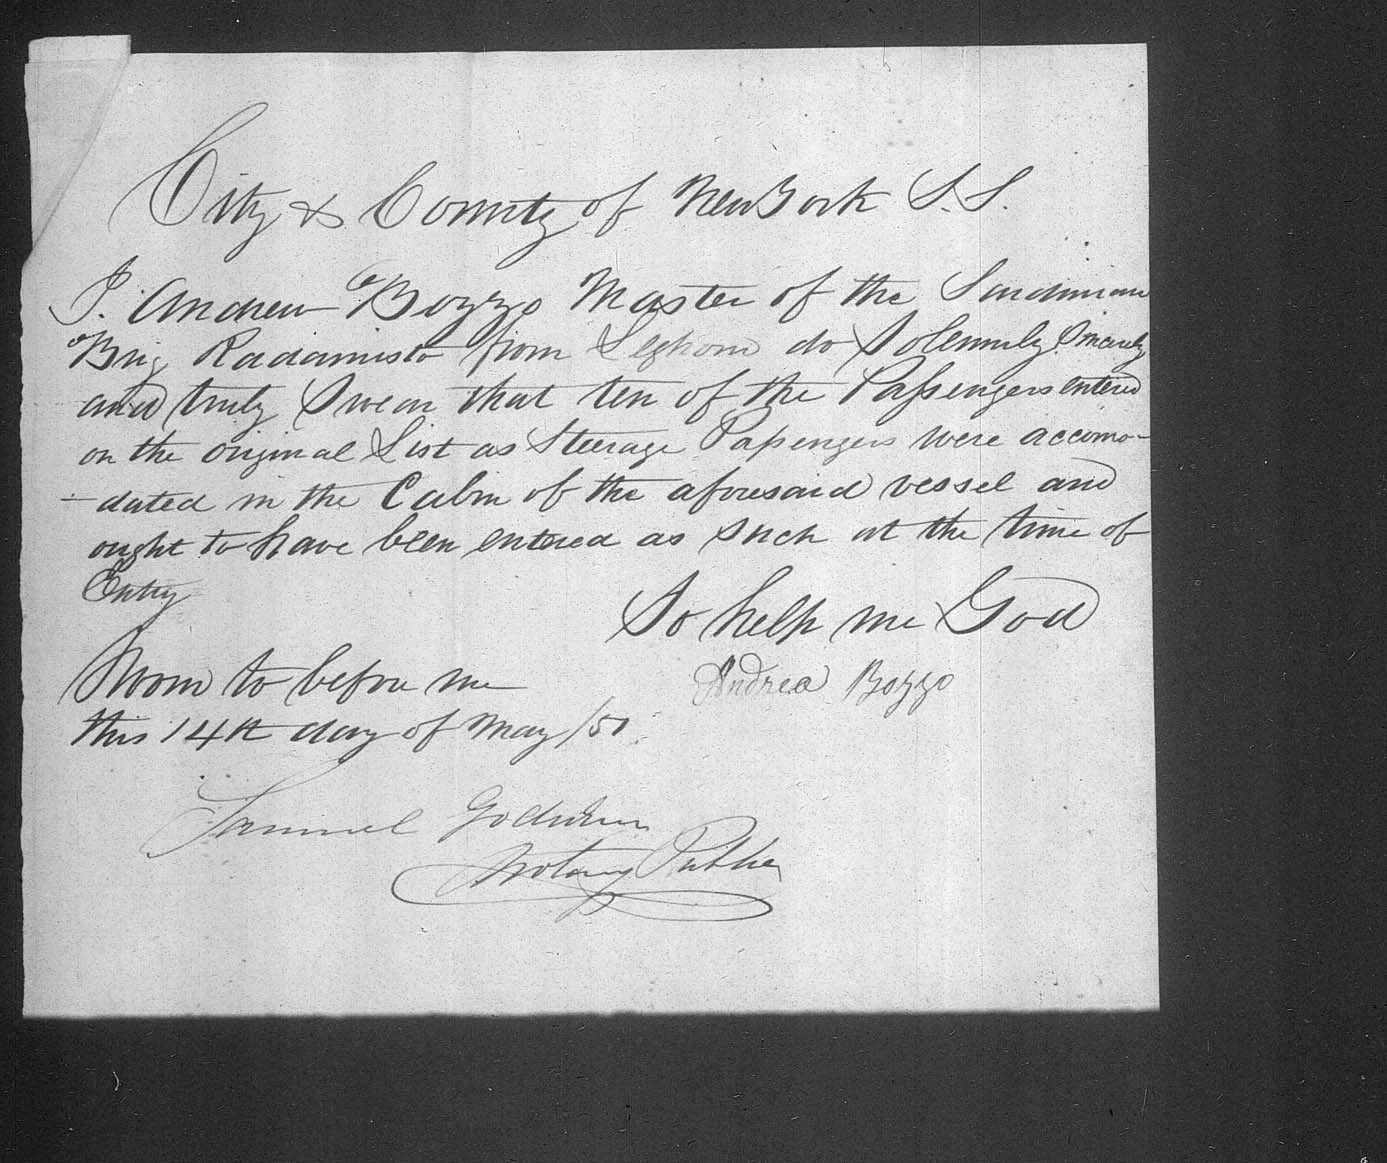 City & County of New York S.S.
I. Andrew Bozzo Master of the Sardinian
Brig Radamisto from Leghorn do Solemnly Sincerely
and truly Swear that ten of the Passengers entered
on the original List as Steerage Passengers were accomo-
-dated in the Cabin of the aforesaid vessel and
ought to have been entered as such at the time of
Entry
So help me God
Sworn to before me
Andrea Bozzo
this 14th day of May /50
Samuel Godwin
Notary Public